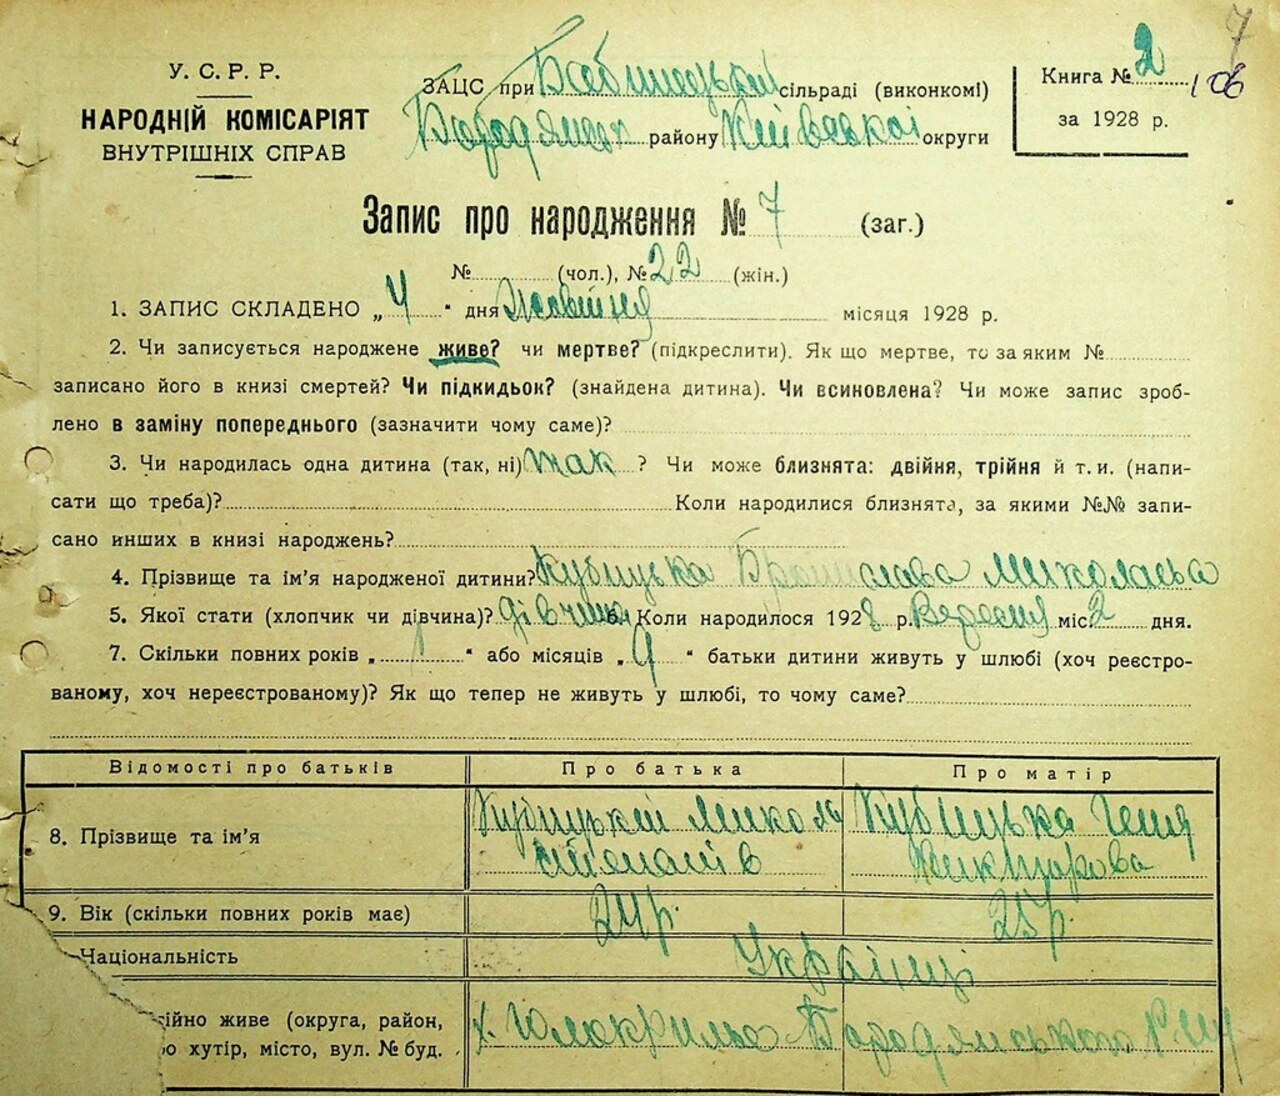 7
У. С. Р. Р.
НАРОДНІЙ КОМІСАРІЯТ
ВНУТРІШНІХ СПРАВ
ЗАЦС при Бабинецькій сільраді (виконкомі)
Бородянськ району Київської округи
Книга № 2 106
за 1928 р.
Запис про народження № 7 (заг.)
№ (чол.), № 22 (жін.)
1. ЗАПИС СКЛАДЕНО „4“ дня Жовтня місяця 1928 р.
2. Чи записується народжене живе? чи мертве? (підкреслити). Як що мертве, то за яким №
записано його в книзі смертей? Чи підкидьок? (знайдена дитина). Чи всиновлена? Чи може запис зроб-
лено в заміну попереднього (зазначити чому саме)?
3. Чи народилась одна дитина (так, ні) так ? Чи може близнята: двійня, трійня й т. и. (напи-
сати що треба)? Коли народилися близнята, за якими №№ запи-
сано инших в книзі народжень?
4. Прізвище та ім’я народженої дитини? Кубицька Броніслава Миколаєва
5. Якої стати (хлопчик чи дівчина)? дівчина 6. Коли народилося 1928 р. Вересня міс 2 дня.
7. Скільки повних років „ 1 “ або місяців „ 9 “ батьки дитини живуть у шлюбі (хоч реєстро-
ваному, хоч нереєстрованому)? Як що тепер не живуть у шлюбі, то чому саме?
Відомості про батьків Про батька Про матір
8. Прізвище та ім’я Кубицький Микола Кубицька Геня
9. Вік (скільки повних років має) 24 р. 25 р.
Національність Українці
ійно живе (округа, район, х. Бородянського р-ну
о хутір, місто, вул. № буд.